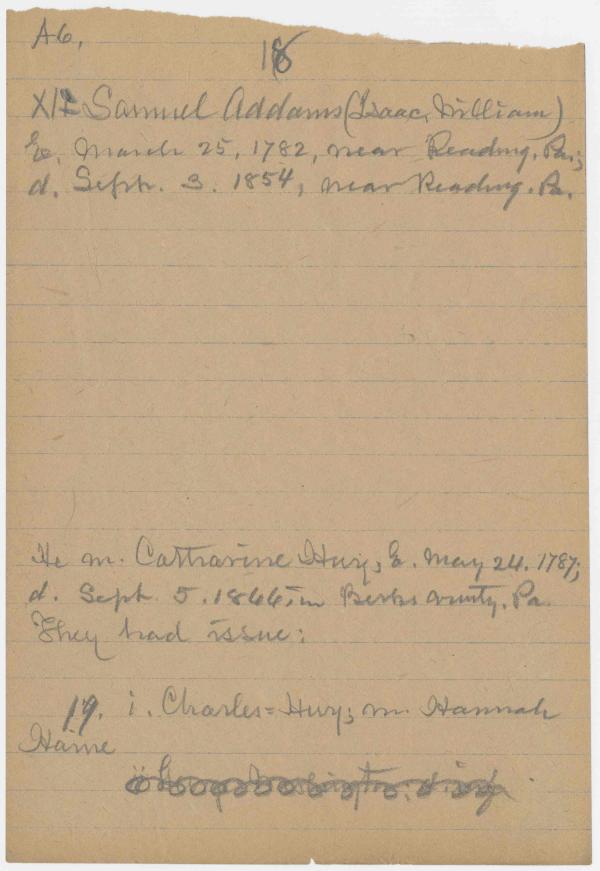 A6,
18
XII Samuel Addams (Isaac, William)
b. March 25, 1782, near Reading, Pa.;
d. Sept. 3. 1854, near Reading, Pa.
He m. Catharine Huy; b. May 24. 1787;
d. Sept. 5. 1866, in Berks county, Pa.
They had issue:
19. i. Charles=Huy; m. Hannah
Haine
ii. Washington; d.